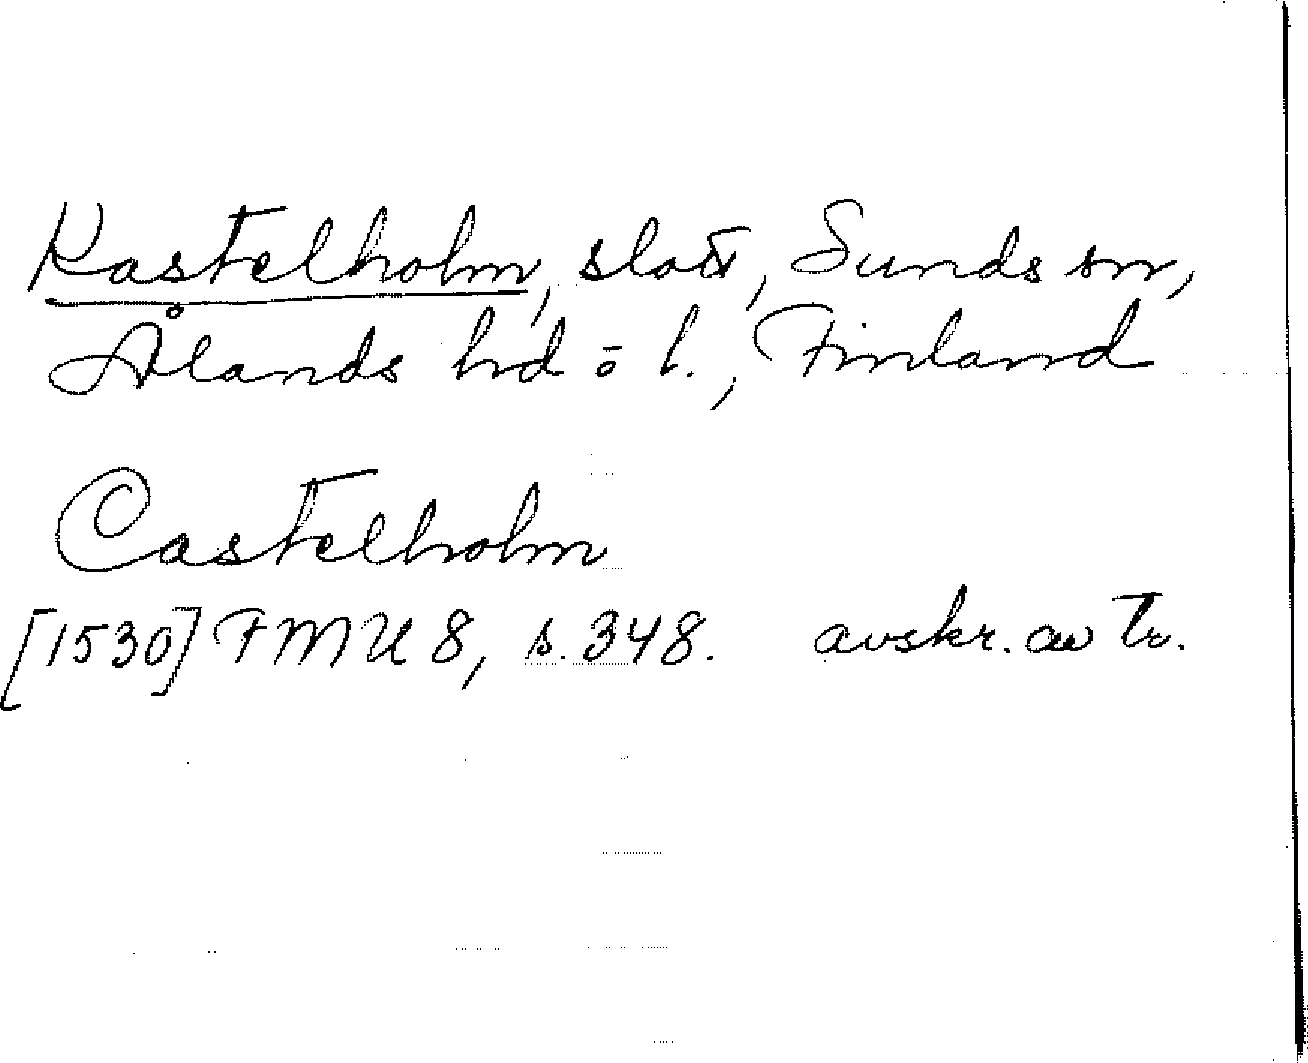 Kastelholm, slott, Sunds sn,
Ålands hd o l., Finland
Castelholm
[1530] FMU 8, s. 348. avskr. av tr.